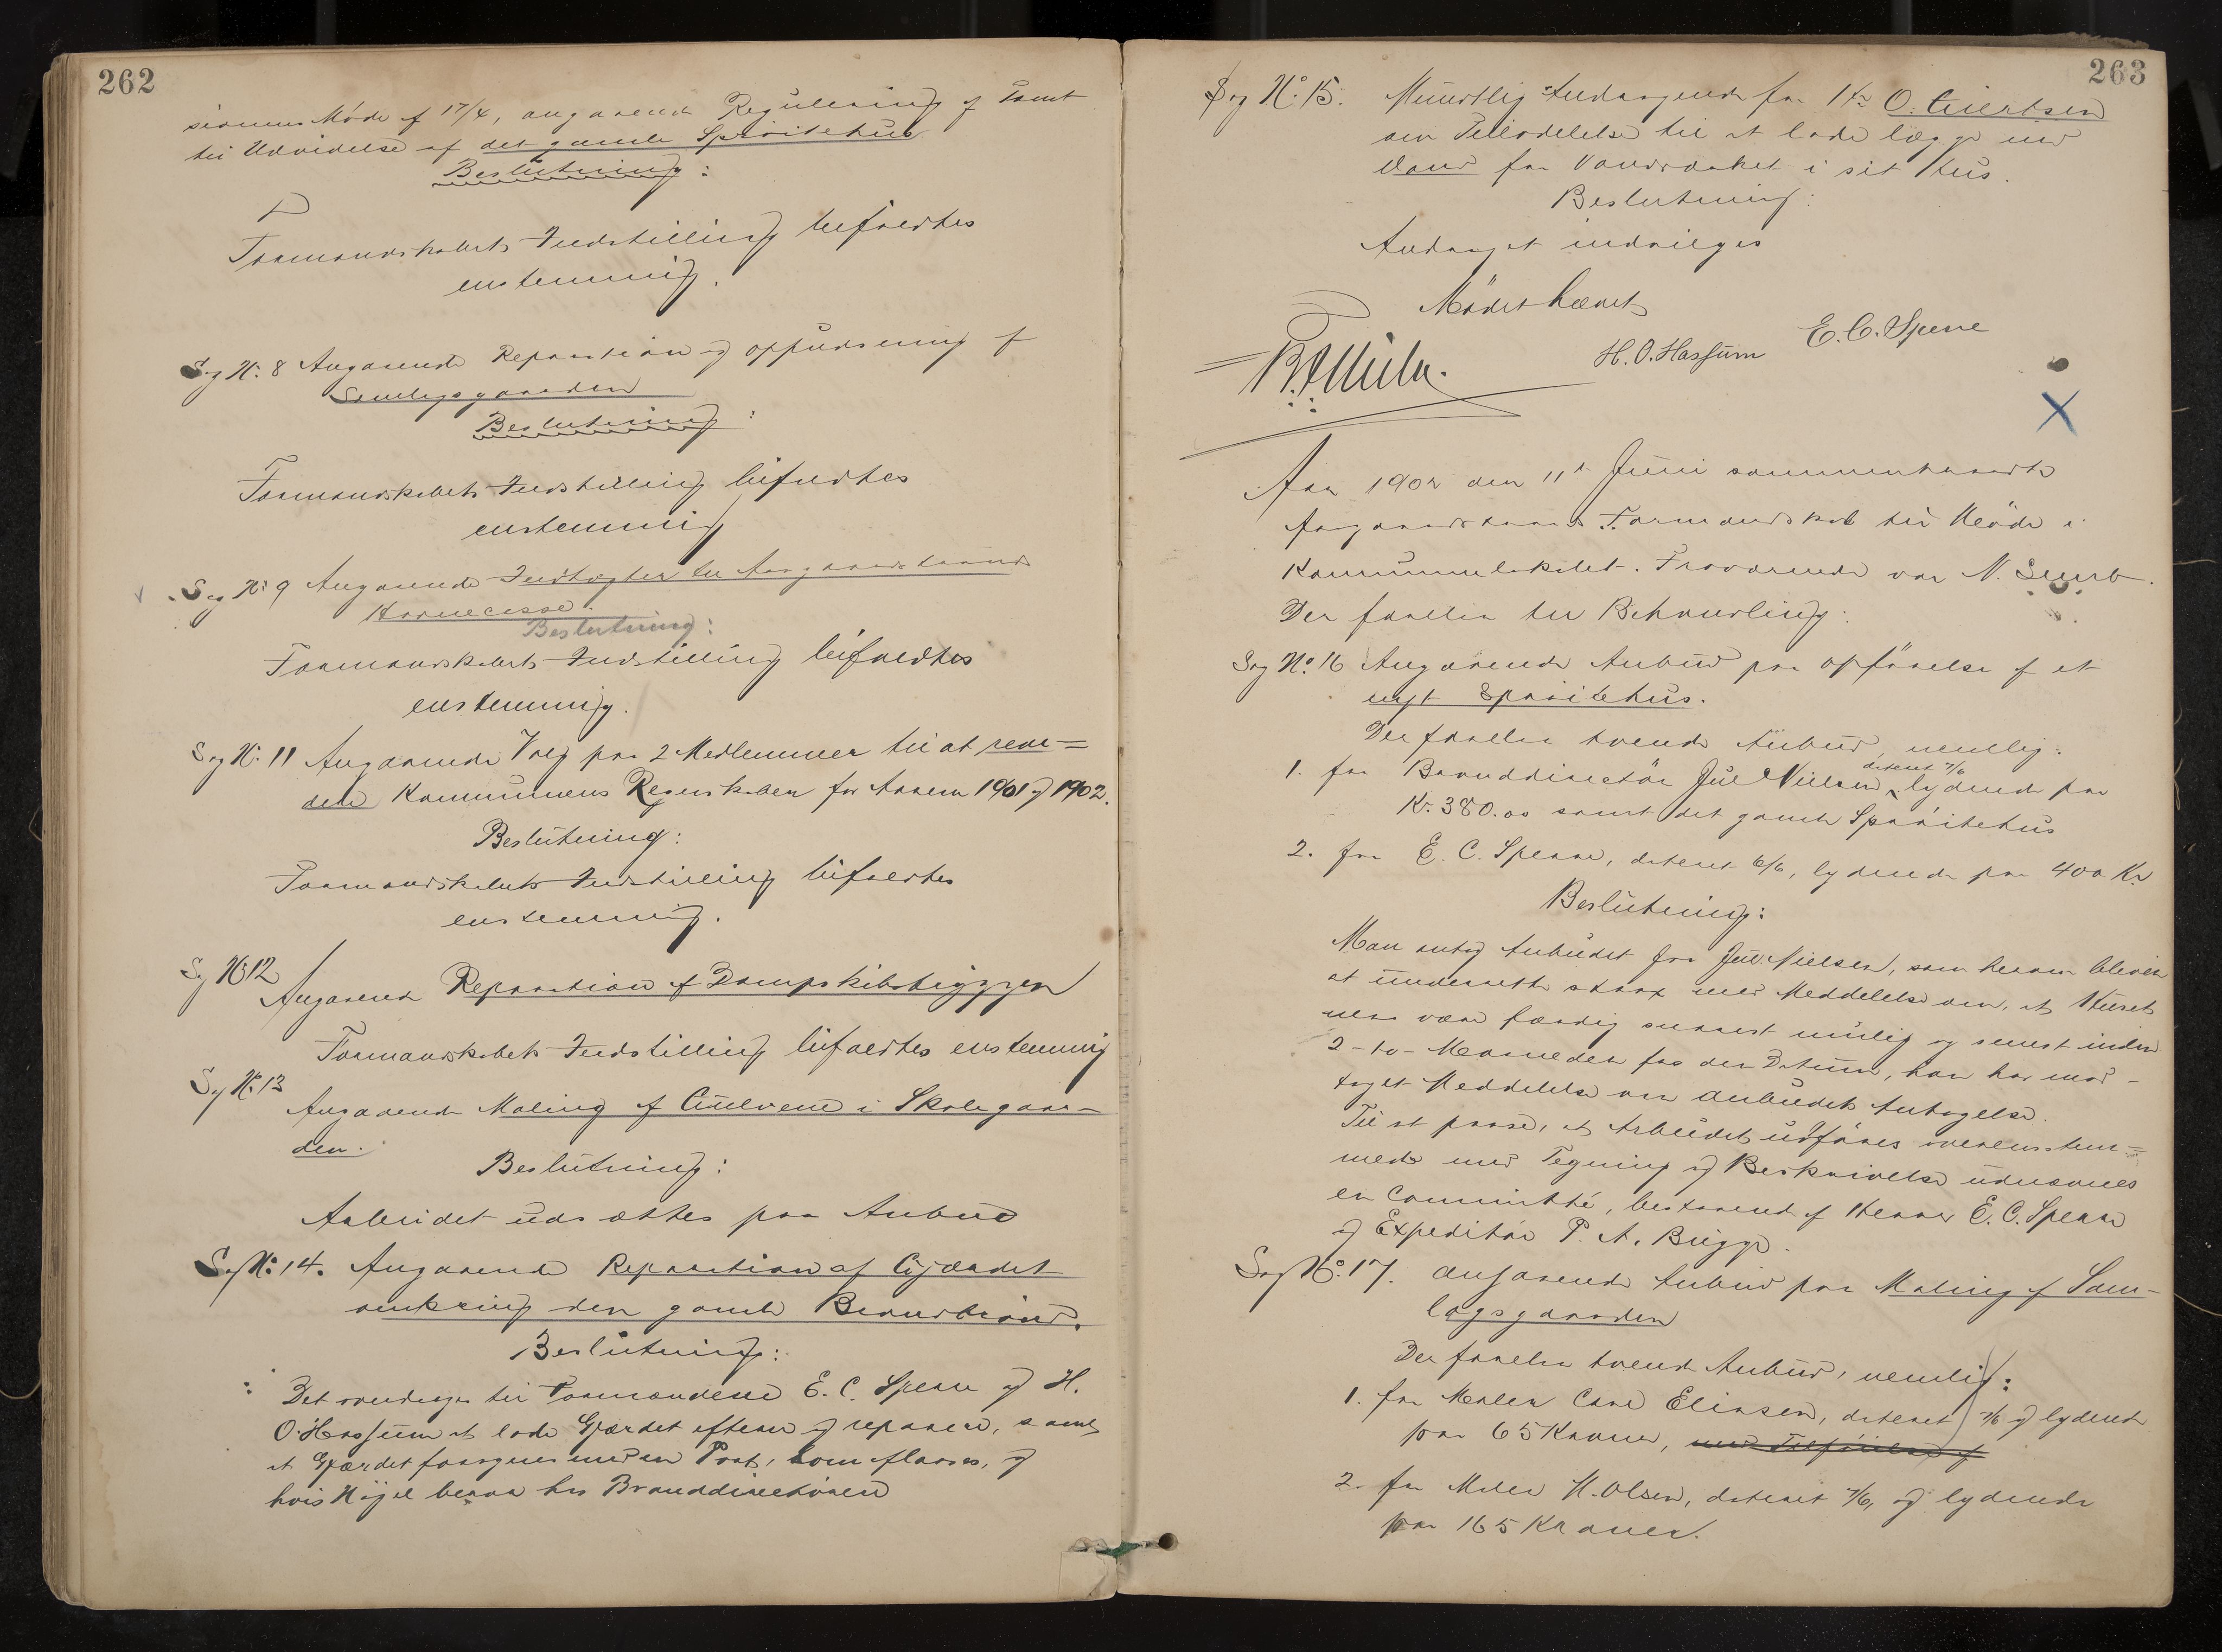 262
sionens Møde af 17/4, angaaende Regulering af Tomt
til Udvidelse af det gamle Sprøitehus
Beslutning:
Formandskabets Indstilling bifaldtes
enstemmig.
Sag No. 8 Angaaende Reparation og oppudsning af
Samlagsgaarden
Beslutning:
Formandskabets Indstilling bifaldtes
enstemmig
Sag No 9 Angaaende Indtægter til Aasgaardstrands
Havnecasse.
Beslutning:
Formandskabets Indstilling bifaldtes
enstemmig.
Sag No. 11 Angaaende Valg paa 2 Medlemmer til at revi=
dere Kommunens Regnskaber for Aarene 1901 og 1902.
Beslutning:
Formandskabets Indstilling bifaldtes
enstemmig.
Sag No 12
Angaaende Reparation af Dampskibsbryggen
Formandskabets Indstilling bifaldtes enstemmig
Sag No. 13
Angaaende Maling af Gulvene i Skolegaar-
den.
Beslutning:
Arbeidet udsættes paa Anbud
Sag No. 14. Angaaende Reparation af Gjærdet
omkring den gamle Brandbrønd.
Beslutning:
Det overdrages til Formændene E. C. Sperre og H.
O. Hassum at lade Gjærdet efterse og reparere, samt
at Gjærdet forsynes med en Port, som aflaases, og
hvis Nøgel beror hos Branddirectøren
263
Sag No. 15. Mundtlig Andragende fra Hr O. Giertsen
om Tilladelse til at lade lægge ind
Vand fra Vandværket i sit Hus.
Beslutning:
Andraget indvilges
Mødet hævet
H. O. Hassum E. C. Sperre
Aar 1902 den 11te Juni sammentraadte
Aasgaardstrands Formandskab til Møde i
Kommunelokalet. Fraværende var N.
Der forelaa til Behandling:
Sag No. 16 Angaaende Anbud paa opførelse af et
nyt Sprøitehus.
Der forelaa tvende Anbud, nemlig:
1. fra Branddirectør Jul Nielsen, dateret 7/6 lydende paa
Kr. 380.00 samt det gamle Sprøitehus
2. fra E. C. Sperre, dateret 6/6, lydende paa 400 Kr
Beslutning:
Man antog Anbudet fra Jul. Nielsen, som herom bliver
at underrette strax med Meddelelse om, at Huset
maa være færdig snarest mulig og senest inden
2-to- Maaneder fra den Datum, han har mod-
taget Meddelelse om Anbudets Antagelse.
Til at paase, at Arbeidet udføres overensstem=
mede med Tegning og Beskrivelse udnævnes
en Committé, bestaaende af Herrer E. C. Sperre
og Expeditør P. A. Bugge.
Sag No. 17. Angaaende Anbud paa Maling af Sam-
lagsgaarden
Der forelaa tvende Anbud, nemlig:
1. fra Maler Carl Eliasen, dateret 7/6 og lydende
paa 65 Kroner, med Tilføielse af
2. fra Maler H. Olsen, dateret 7/6, og lydende
paa 165 Kroner.